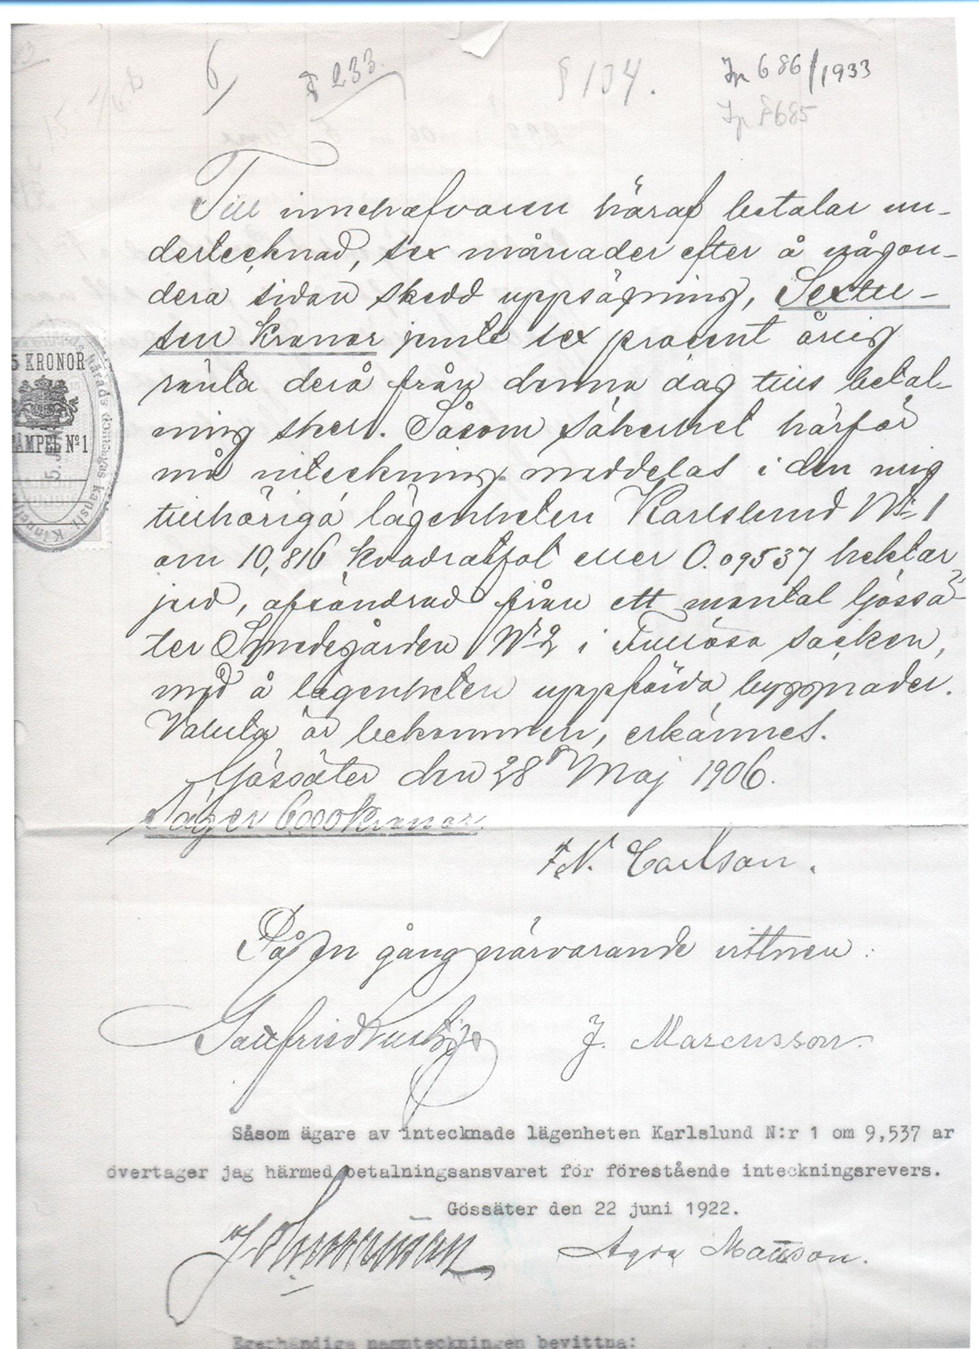 6
§ 233.
§ 134.
Ip 686/1933
Ip § 685
Till innehafvaren häraf betalar un-
dertecknad, sex månader efter å någon-
dera sidan skedd uppsägning, Sextu-
sen Kronor jemte sex procent årlig
ränta derå från denna dag tills betal-
ning sker. Såsom säkerhet härför
må inteckning meddelas i den mig
tillhöriga lägenheten Karlslund No 1
om 10,816 kvadratfot eller 0.09537 hektar
jord, afsöndrad från ett mantal Gössä-
ter Smedegården No 2 i Fullösa socken,
med å lägenheten uppförda byggnader.
Valuta är bekommen, erkännes.
Gössäter den 28 Maj 1906.
Säger 6000 Kronor.
F. N. Carlson.
På en gång närvarande vittnen:
J. Marcusson.
5 KRONOR
STÄMPEL No 1
Såsom ägare av intecknade lägenheten Karlslund N:r 1 om 9,537 ar
övertager jag härmed betalningsansvaret för förestående inteckningsrevers.
Gössäter den 22 juni 1922.
Mattson.
Egenhändiga namnteckningen bevittna: